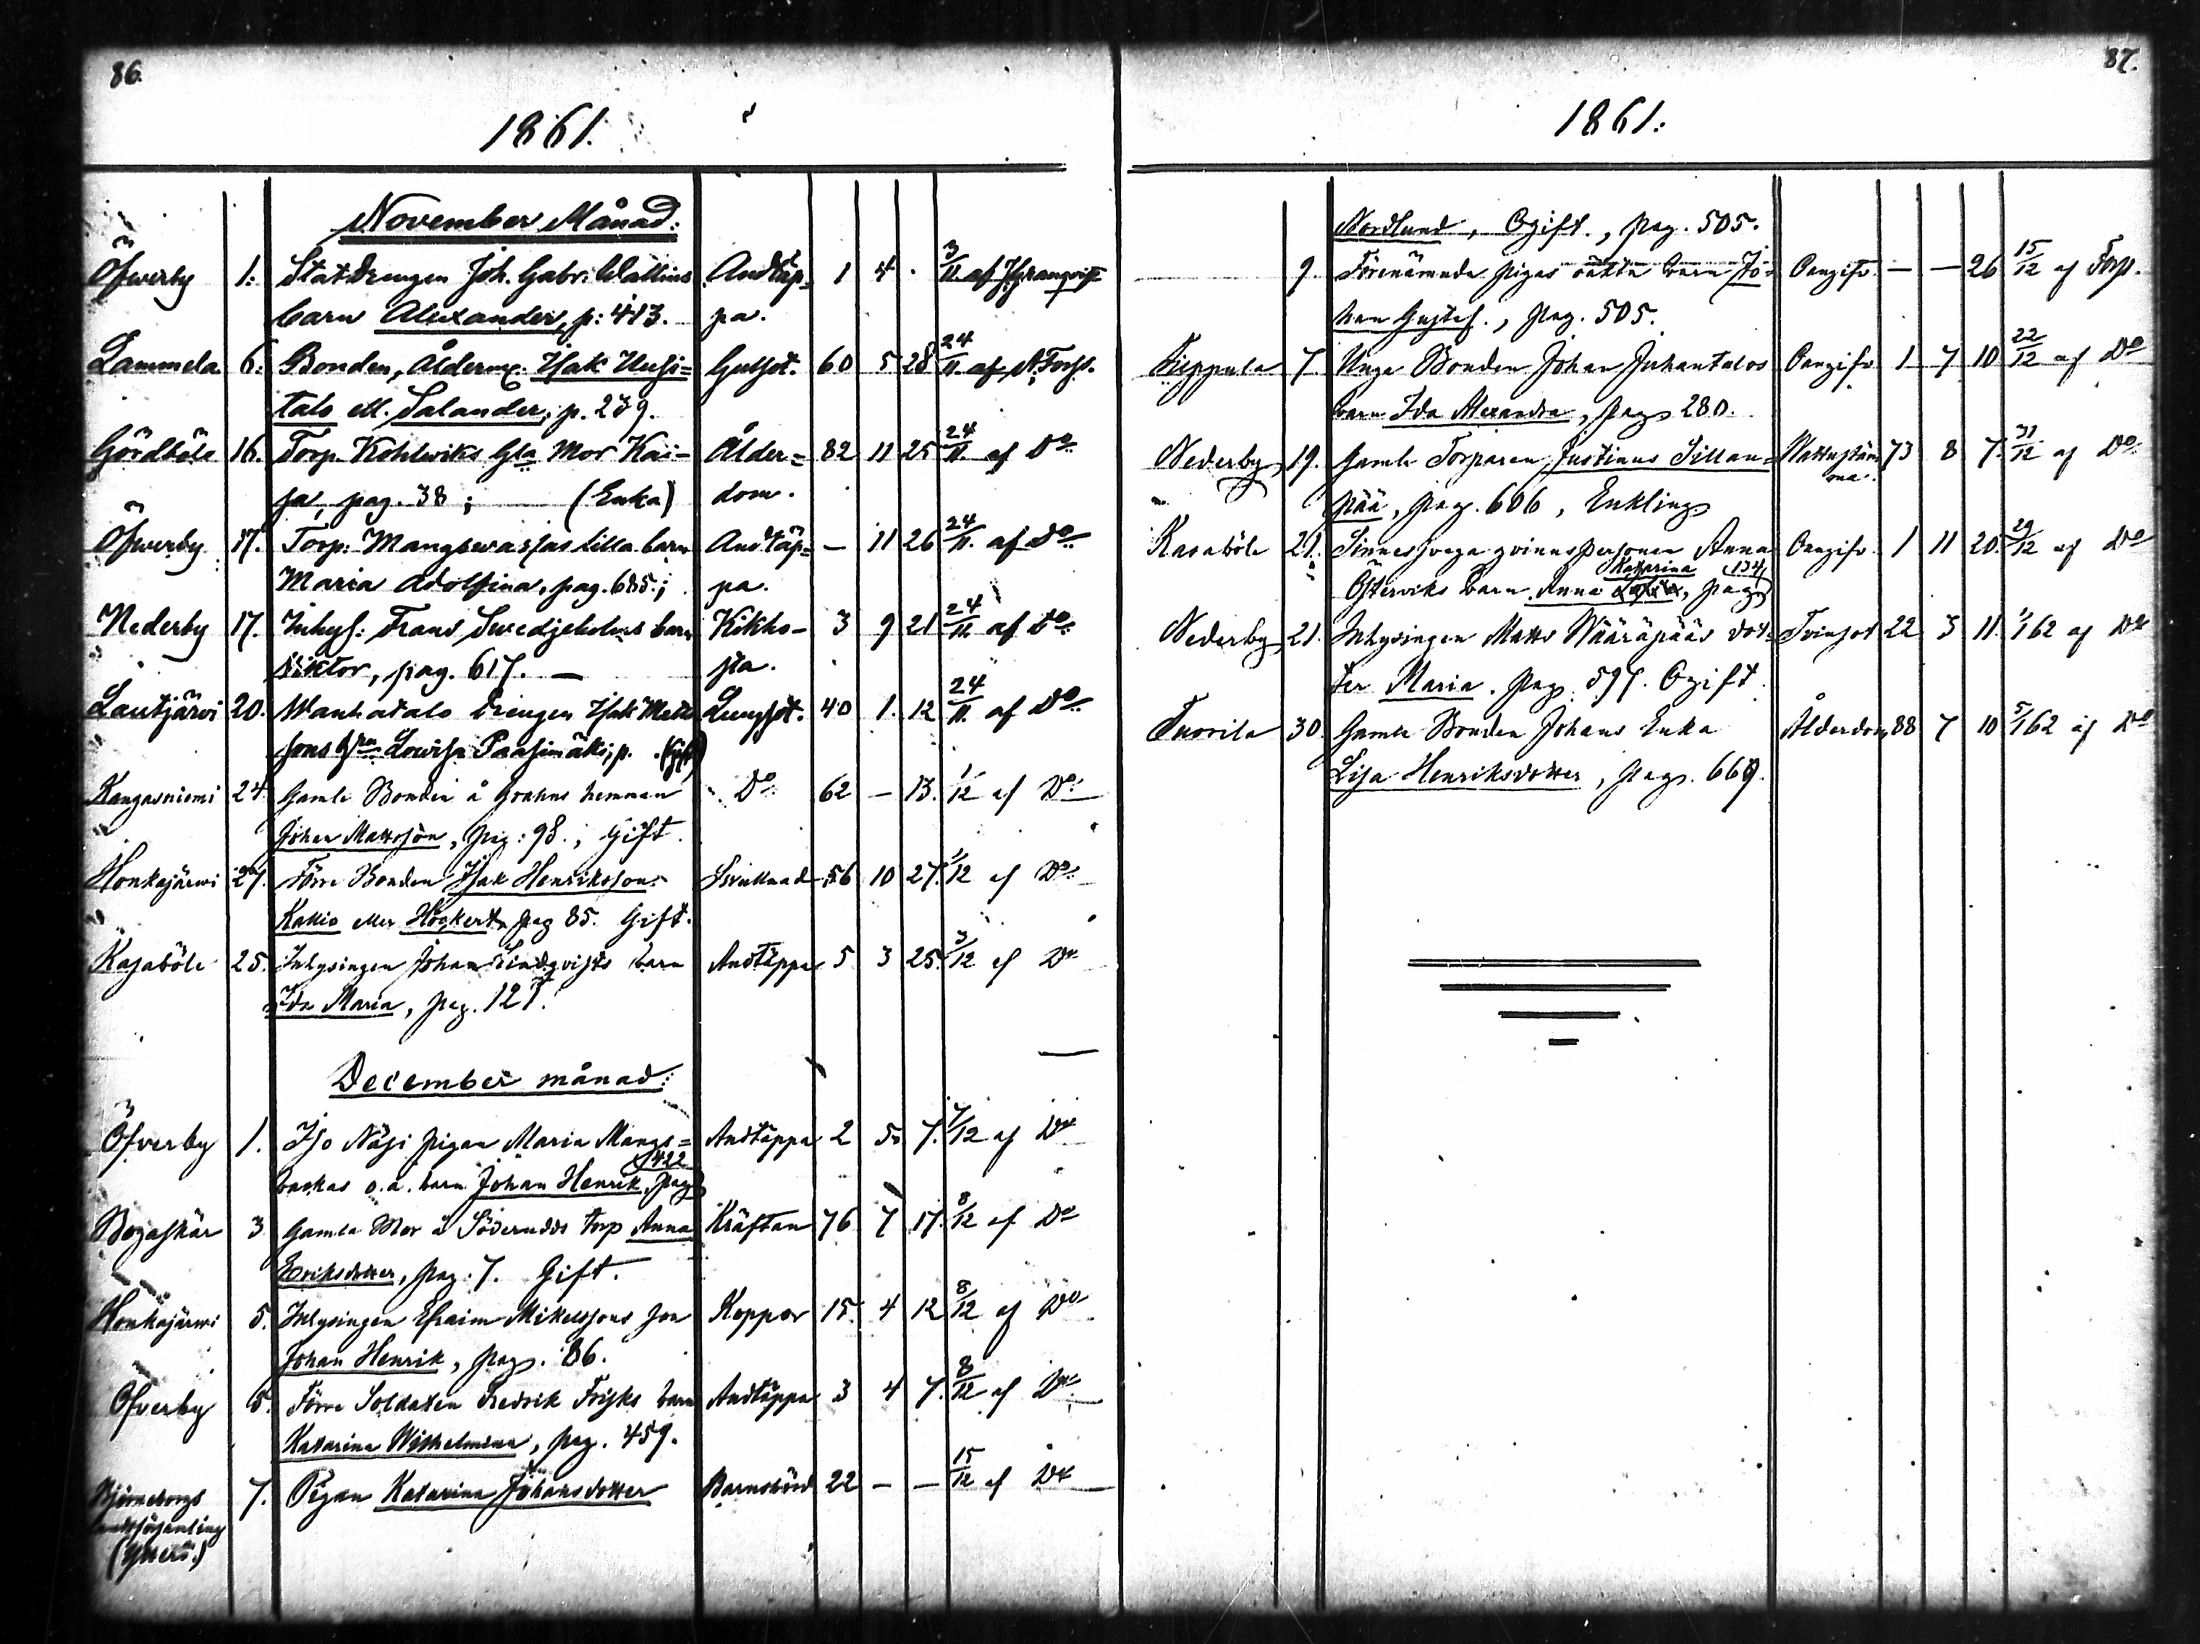 86.
1861.
November Månad:
Öfverby 1. Statdrengen Joh. Gabr. Wallins Andtäp- 1 4 . 3/11 af
barn Alexander, p: 413. pa.
Lammela 6. Bonden, Ålderm: Isak Uusi= 60 5 28 24/11 af A. Forss.
talo ell. Salander, p. 239.
Gördböle 16. Torp. Kohlwiks Gla Mor Kai- Ålder= 82 11 25 24/11 af Do
sa, pag. 38 ; (Enka) dom.
Öfverby 17. Torp: Mangswasjas lilla barn Andtäp= — 11 26 24/11 af Do
Maria Adolfina, pag. 685.; pa.
Nederby 17. Inhys: Frans Swedjeholms barn Kikho- 3 9 21 24/11 af Do
Wiktor, pag. 617. — sta.
Lautjärvi 20. Wanhatalo drengen Isak Matts Lungsot. 40 1. 12 24/11 af Do
sons Lowisa Paasimäki, p. (Gift)
Kangasniemi 24. Gamle Bonden å Grahns hemman Do 62 — 13. 1/12 af Do
Johan Mattsson, pag: 98., Gift.
Honkajärwi 27. Förre Bonden Isak Henriksson 56 10 27. 1/12 af Do
Kallio eller Högkert, pag 85. Gift.
Kasaböle 25. Inhysingen Johan Lindqvists barn Andtäppa 5 3 25. 3/12 af Do
Ida Maria, pag. 127.
December månad:
Öfverby 1. Iso Näsi pigan Maria Mangs= Andtäppa 2 5 7. 7/12 af Do
422
backas o.ä. barn Johan Henrik, pag
3 Gamla Mor å Söderudds torp Anna Kräftan 76 7 17. 8/12 af Do
Eriksdotter, pag. 7. Gift.
Honkajärwi 5. Inhysingen Efraim Mikelssons son Koppor 15. 4 12 8/12 af Do
Johan Henrik, pag. 86.
Öfverby 5. Förre Soldaten Fredrik Frisks barn Andtäppa 3 4 7. 8/12 af Do
Katarina Wilhelmina, pag. 459.
Björneborgs 7. Pigan Katarina Johansdotter Barnsbörd 22 — — 15/12 af Do
landsförsamling
87.
1861.
Nordlund, Ogift., pag. 505.
— 9. Förenämnde pigas oäkta barn Jo= Oangifv. — — 26 15/12 af Forss.
han Gustaf., pag. 505.
Filppula 7. Unga Bonden Johan Juhantalos Oangifv 1 7 10 22/12 af Do
barn Ida Alexandra, pag 280.
Nederby 19. Gamle Torparen Justinus Sillan= 73 8 7. 31/12 af Do
pää, pag. 606, Enkling
Kasaböle 21. Sinnessvaga qvinnspersonen Anna Oangifv. 1 11 20. 29/12 af Do
Katarina 134
Österviks barn Anna, pag
Nederby 21. Inhysingen Matts Wääräpääs dot- Tvinsot 22 3 11. 1/1 62 af Do
ter Maria. pag 597. Ogift
Tuorila 30. Gamle Bonden Johans Enka Ålderdom 88 7 10 5/1 62 af Do
Lisa Henriksdotter, pag. 669.